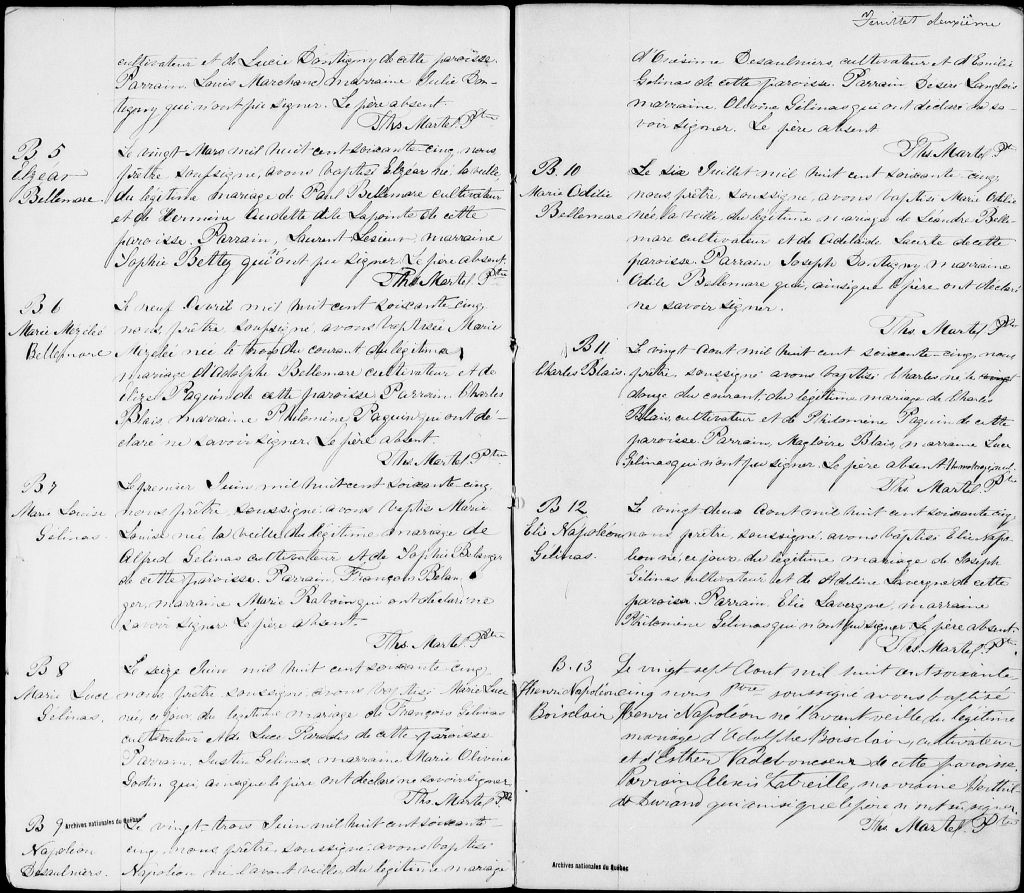 cultivateur et de Lucie Dontigny de cette paroisse.
Parrain, Louis Marchand, marraine Julie Don-
tigny qui n'ont pu signer. Le père absent
Ths. Martel Ptre
B 5
Elzéar
Bellemare
Le vingt Mars mil huit cent soixante-cinq, nous
prêtre, soussigné, avons baptisé Elzéar né, la veille
du légitime mariage de Paul Bellemare cultivateur
et de Hermine dite Lapointe de cette
paroisse. Parrain, Laurent Lesieur, marraine
Sophie Bettey qui n'ont pu signer. Le père absent.
Ths. Martel Ptre
B 6
Marie Mézélé
Bellemare
Le neuf Avril mil huit cent soixante-cinq,
nous prêtre, soussigné, avons baptisée Marie
Mézélé née le trois du courant du légitime
mariage d'Adolphe Bellemare cultivateur et de
Paquin de cette paroisse. Parrain Charles
Blais, marraine, Philomène Paquin qui ont dé-
claré ne savoir signer. Le père absent.
Ths. Martel Ptre
B 7
Marie Louise
Gélinas.
Le premier Juin mil huit cent soixante-cinq,
nous prêtre, soussigné, avons baptisé Marie
Louise née la veille du légitime mariage de
Alfred Gélinas cultivateur et de Sophie Belanger
de cette paroisse. Parrain, François Belan-
ger, marraine Marie Rabouin qui ont déclaré ne
savoir signer. Le père absent.
Ths. Martel Ptre
B 8
Marie Luce
Gélinas.
Le seize Juin mil huit cent soixante cinq,
nous prêtre soussigné, avons baptisé Marie Luce
née, ce jour, du légitime mariage de François Gélinas
cultivateur et de Luce Paradis de cette paroisse
Parrain, Justin Gélinas, marraine Marie Olivine
Godin qui ainsi que le père ont déclaré ne savoir signer
Ths. Martel Ptre
B 9 Archives nationales du Québec
Napoléon
Desaulniers.
Le vingt-trois Juin mil huit cent soixante-
cinq, nous prêtre, soussigné, avons baptisé
Napoléon né l'avant veille, du légitime mariage
Feuillet deuxième
d'Onésime Desaulniers, cultivateur et d'Emilie
Gélinas de cette paroisse. Parrain Langlois
marraine, Olivine Gélinas qui ont déclaré ne sa-
voir signer. Le père absent
Ths. Martel Ptre
B. 10
Marie Odélie
Bellemare
Le six Juillet mil huit cent soixante-cinq,
nous prêtre, soussigné, avons baptisé Marie Odélie
née, la veille, du légitime mariage de Léandre Belle-
mare cultivateur et de Adélaïde Lacerte de cette
paroisse. Parrain Joseph Dontigny, marraine
Odile Bellemare qui, ainsi que le père ont déclaré
ne savoir signer.
Ths. Martel Ptre
B 11
Charles Blais.
Le vingt Aout mil huit cent soixante-cinq, nous
prêtre, soussigné avons baptisé Charles né le vingt
douze du courant, du légitime mariage de Charles
Blais, cultivateur et de Philomène Paquin de cette
paroisse. Parrain, Magloire Blais, marraine Luce
Gélinas qui n'ont pu signer. Le père absent
Ths. Martel Ptre
B 12
Elie Napoléon
Gélinas.
Le vingt deux Aout mil huit cent soixante cinq,
nous prêtre, soussigné, avons baptisé Elie Napo-
léon né, ce jour, du légitime mariage de Joseph
Gélinas cultivateur et de Adéline Lavergne de cette
paroisse. Parrain, Elie Lavergne, marraine
Philomène Gélinas qui n'ont pu signer. Le père absent.
Ths. Martel Ptre
B. 13
Henri Napoléon
Boisclair
Le vingt-sept Aout mil huit cent soixante-
cinq nous ptre soussigné avons baptisé
Henri Napoléon né l'avant veille, du légitime
mariage d'Adolphe Boisclair, cultivateur
et d'Esther Vadeboncoeur de cette paroisse.
Parrain Alexis Latreille, marraine
Durand qui ainsi que le père n'ont su signer.
Ths. Martel Ptre
Archives nationales du Québec